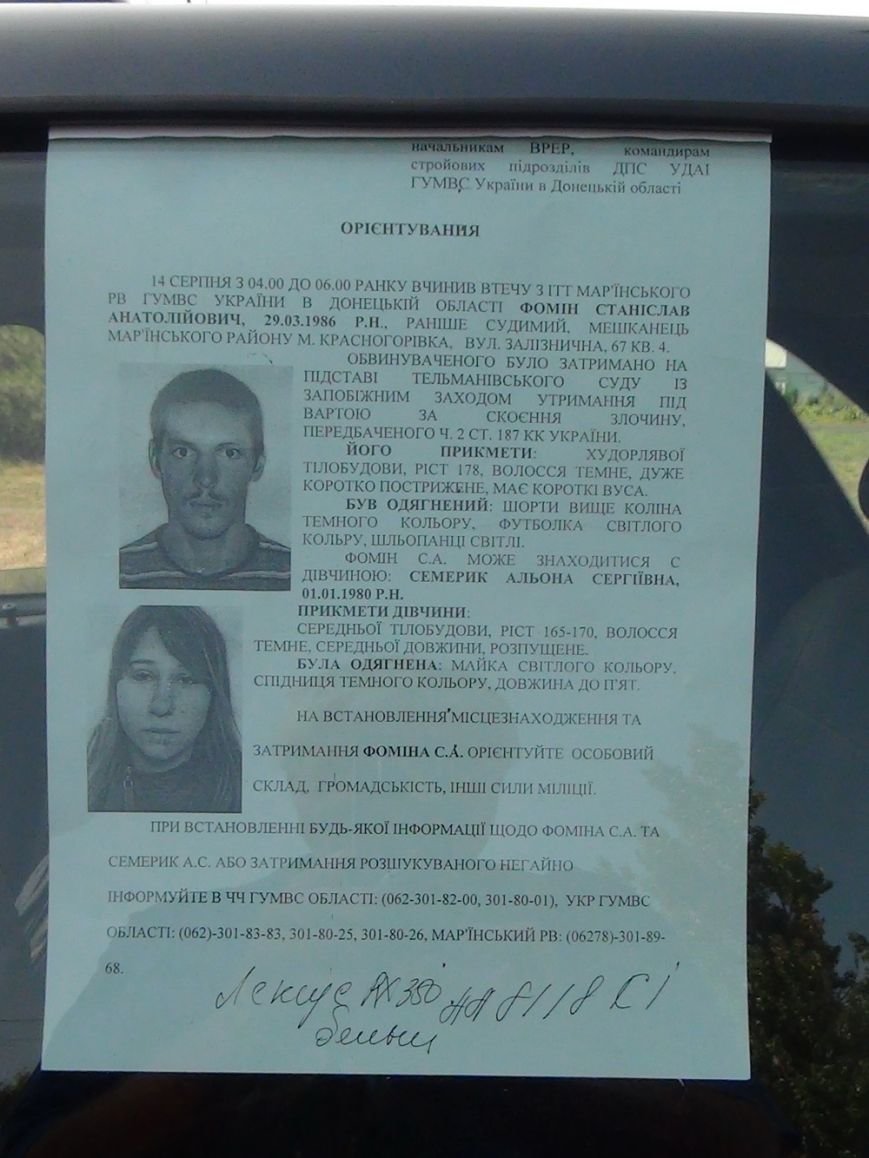 начальникам ВРЕР, командирам
стройових підрозділів ДПС УДАІ
ГУМВС України в Донецькій області
ОРІЄНТУВАННЯ
14 СЕРПНЯ З 04.00 ДО 06.00 РАНКУ ВЧИНИВ ВТЕЧУ З ІТТ МАР'ЇНСЬКОГО
РВ ГУМВС УКРАЇНИ В ДОНЕЦЬКІЙ ОБЛАСТІ ФОМІН СТАНІСЛАВ
АНАТОЛІЙОВИЧ, 29.03.1986 Р.Н., РАНІШЕ СУДИМИЙ, МЕШКАНЕЦЬ
МАР'ЇНСЬКОГО РАЙОНУ М. КРАСНОГОРІВКА, ВУЛ. ЗАЛІЗНИЧНА, 67 КВ. 4.
ОБВИНУВАЧЕНОГО БУЛО ЗАТРИМАНО НА
ПІДСТАВІ ТЕЛЬМАНІВСЬКОГО СУДУ ІЗ
ЗАПОБІЖНИМ ЗАХОДОМ УТРИМАННЯ ПІД
ВАРТОЮ ЗА СКОЄННЯ ЗЛОЧИНУ,
ПЕРЕДБАЧЕНОГО Ч. 2 СТ. 187 КК УКРАЇНИ.
ЙОГО ПРИКМЕТИ: ХУДОРЛЯВОЇ
ТІЛОБУДОВИ, РІСТ 178, ВОЛОССЯ ТЕМНЕ, ДУЖЕ
КОРОТКО ПОСТРИЖЕНЕ, МАЄ КОРОТКІ ВУСА.
БУВ ОДЯГНЕНИЙ: ШОРТИ ВИЩЕ КОЛІНА
ТЕМНОГО КОЛЬОРУ, ФУТБОЛКА СВІТЛОГО
КОЛЬРУ, ШЛЬОПАНЦІ СВІТЛІ.
ФОМІН С.А. МОЖЕ ЗНАХОДИТИСЯ С
ДІВЧИНОЮ: СЕМЕРИК АЛЬОНА СЕРГІЇВНА,
01.01.1980 Р.Н.
ПРИКМЕТИ ДІВЧИНИ:
СЕРЕДНЬОЇ ТІЛОБУДОВИ, РІСТ 165-170, ВОЛОССЯ
ТЕМНЕ, СЕРЕДНЬОЇ ДОВЖИНИ, РОЗПУЩЕНЕ.
БУЛА ОДЯГНЕНА: МАЙКА СВІТЛОГО КОЛЬОРУ,
СПІДНИЦЯ ТЕМНОГО КОЛЬОРУ, ДОВЖИНА ДО П'ЯТ.
НА ВСТАНОВЛЕННЯ МІСЦЕЗНАХОДЖЕННЯ ТА
ЗАТРИМАННЯ ФОМІНА С.А. ОРІЄНТУЙТЕ ОСОБОВИЙ
СКЛАД, ГРОМАДСЬКІСТЬ, ІНШІ СИЛИ МІЛІЦІЇ.
ПРИ ВСТАНОВЛЕННІ БУДЬ-ЯКОЇ ІНФОРМАЦІЇ ЩОДО ФОМІНА С.А. ТА
СЕМЕРИК А.С. АБО ЗАТРИМАННЯ РОЗШУКУВАНОГО НЕГАЙНО
ІНФОРМУЙТЕ В ЧЧ ГУМВС ОБЛАСТІ: (062-301-82-00, 301-80-01), УКР ГУМВС
ОБЛАСТІ: (062)-301-83-83, 301-80-25, 301-80-26, МАР'ЇНСЬКИЙ РВ: (06278)-301-89-
68.
Лексус RX 350 АА 8118 КІ
белый